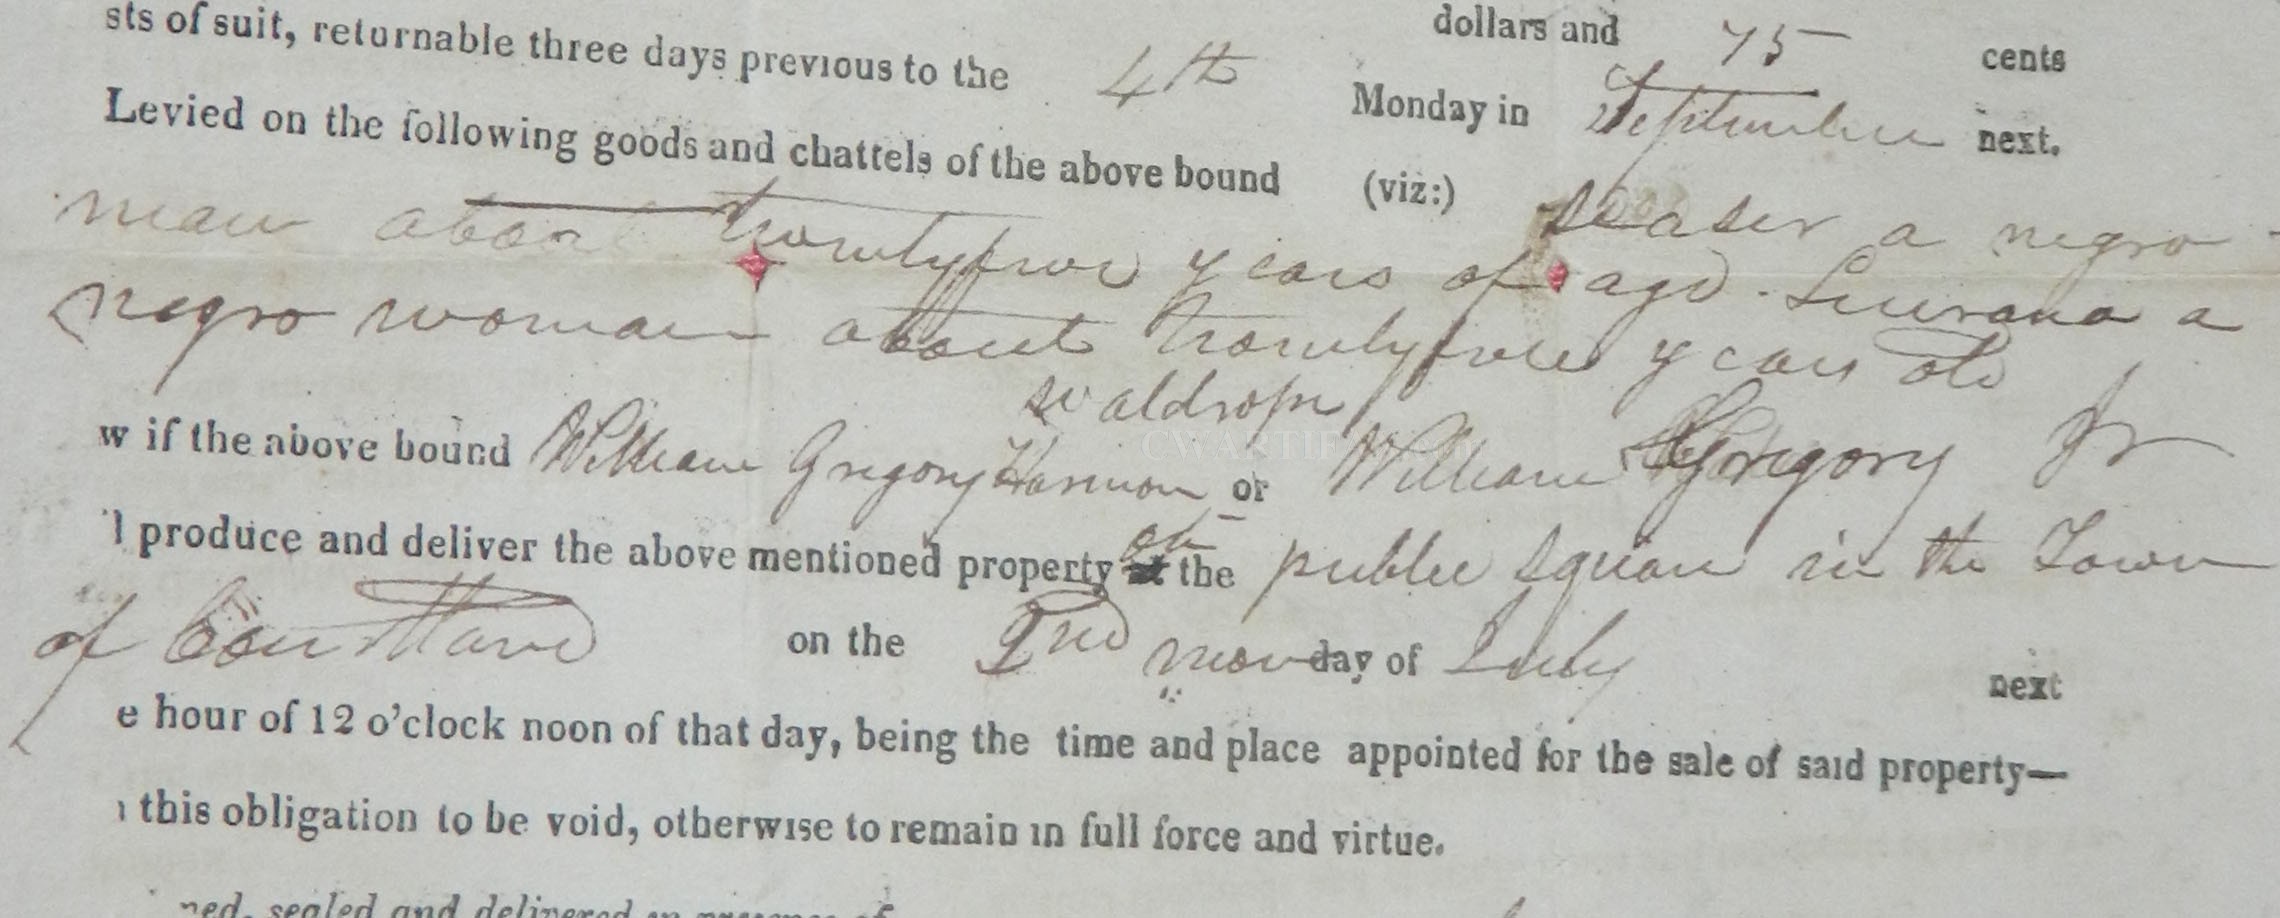 dollars and 75 cents
sts of suit, returnable three days previous to the 4th Monday in September next.
Levied on the following goods and chattels of the above bound (viz:) a negro
man about twentyfive years of age. Luvrana a
negro woman about twentyfive years old
waldrop
w if the above bound William Gregory Harmon or William Gregory Jr
l produce and deliver the above mentioned property on the public square in the Town
of Courtland on the 2nd monday of July next
e hour of 12 o'clock noon of that day, being the time and place appointed for the sale of said property—
this obligation to be void, otherwise to remain in full force and virtue.
ned, sealed and delivered in presence of